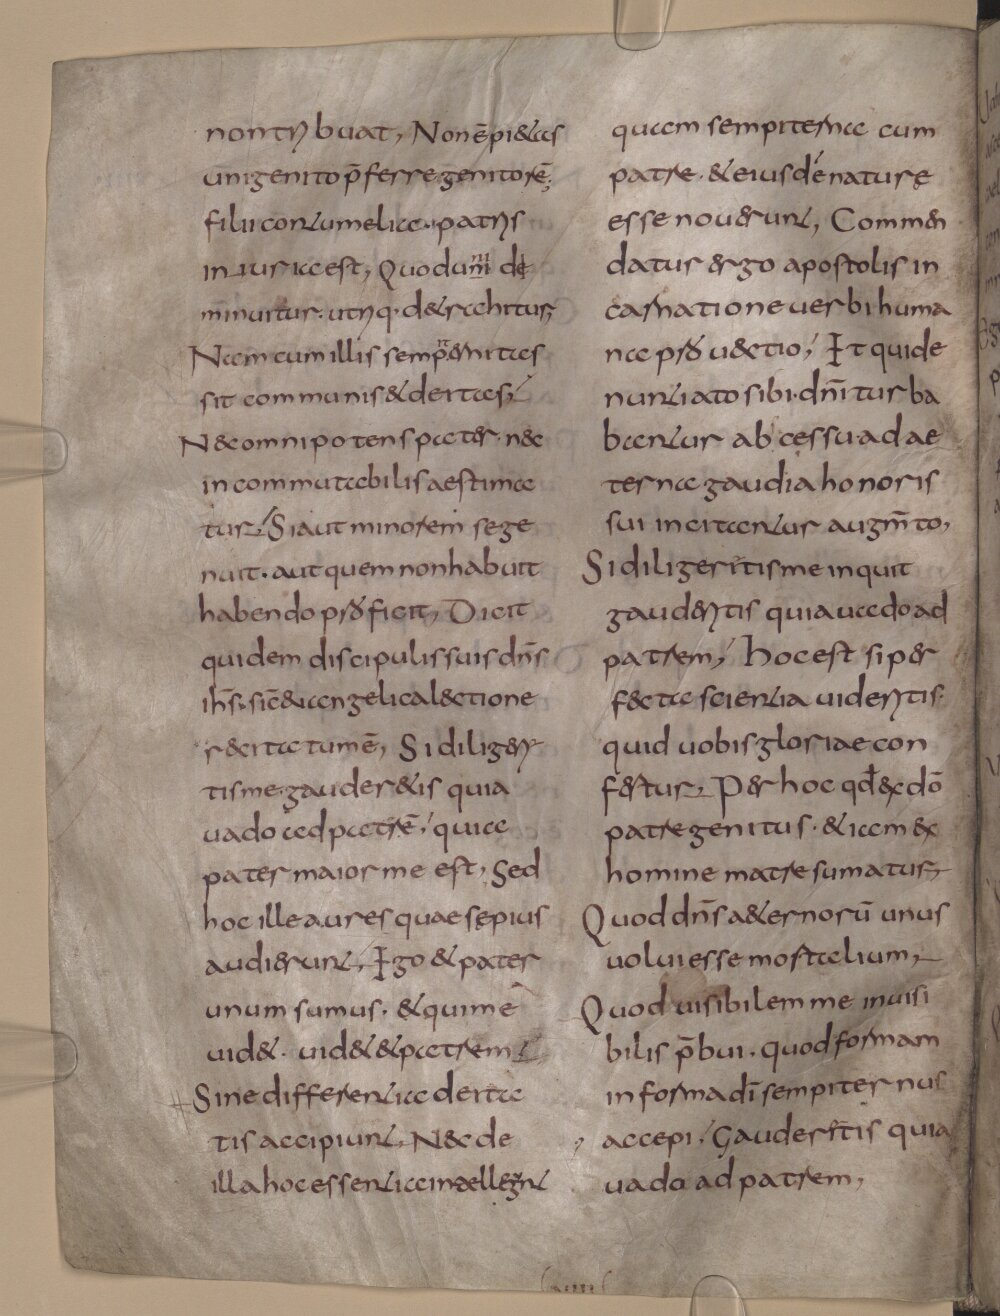 non tribuat, Non ē pi&as
unigenito p̄ferre genitorē;
filii contumelia. patris
iniuria est, Quod uni de
minuitur. utriq. d&rahitur;
Nam cum illis sempiternitas
sit communis & deitas,
Nec omnipotens pater. nec
incommutabilis aestima
tur, Si aut minorem se ge
nuit. aut quem non habuit
habendo proficit, Dicit
quidem discipulis suis dn̄s
ih̄s. sic& euangelica lectione
recitatum ē, Si diligeri
tis me. gauder&is quia
uado ad patrē, quia
pater maior me est, Sed
hoc ille aures quae sępius
audierunt, Ego & pater
unum sumus. & qui me
uid&. uid& & patrem,
Sine differentia deita
tis accipiunt, Nec de
illa hoc essentia intellegunt
quam sempiterna cum
patre. & eiusdē naturę
esse nouerunt, Commen
datur ergo apostolis in
carnatione uerbi huma
na prouectio, Et qui de
nuntiato sibi. dn̄i turba
bantur abcessu. ad ae
terna gaudia honoris
sui incitantur augm̄to,
Si diligeritis me inquit
gauderitis quia uado ad
patrem, hoc est si per
fecta scientia uideritis.
quid uobis gloriae con
fertur, Per hoc qđ ex dō
patre genitus. & iam ex
homine matre sumatur,
Quod dn̄s a&ernorū unus
uolui esse mortalium,
Quod uisibilem me inuisi
bilis p̄bui. quod formam
in forma dī sempiternus
accepi, Gauderitis quia
uado ad patrem,